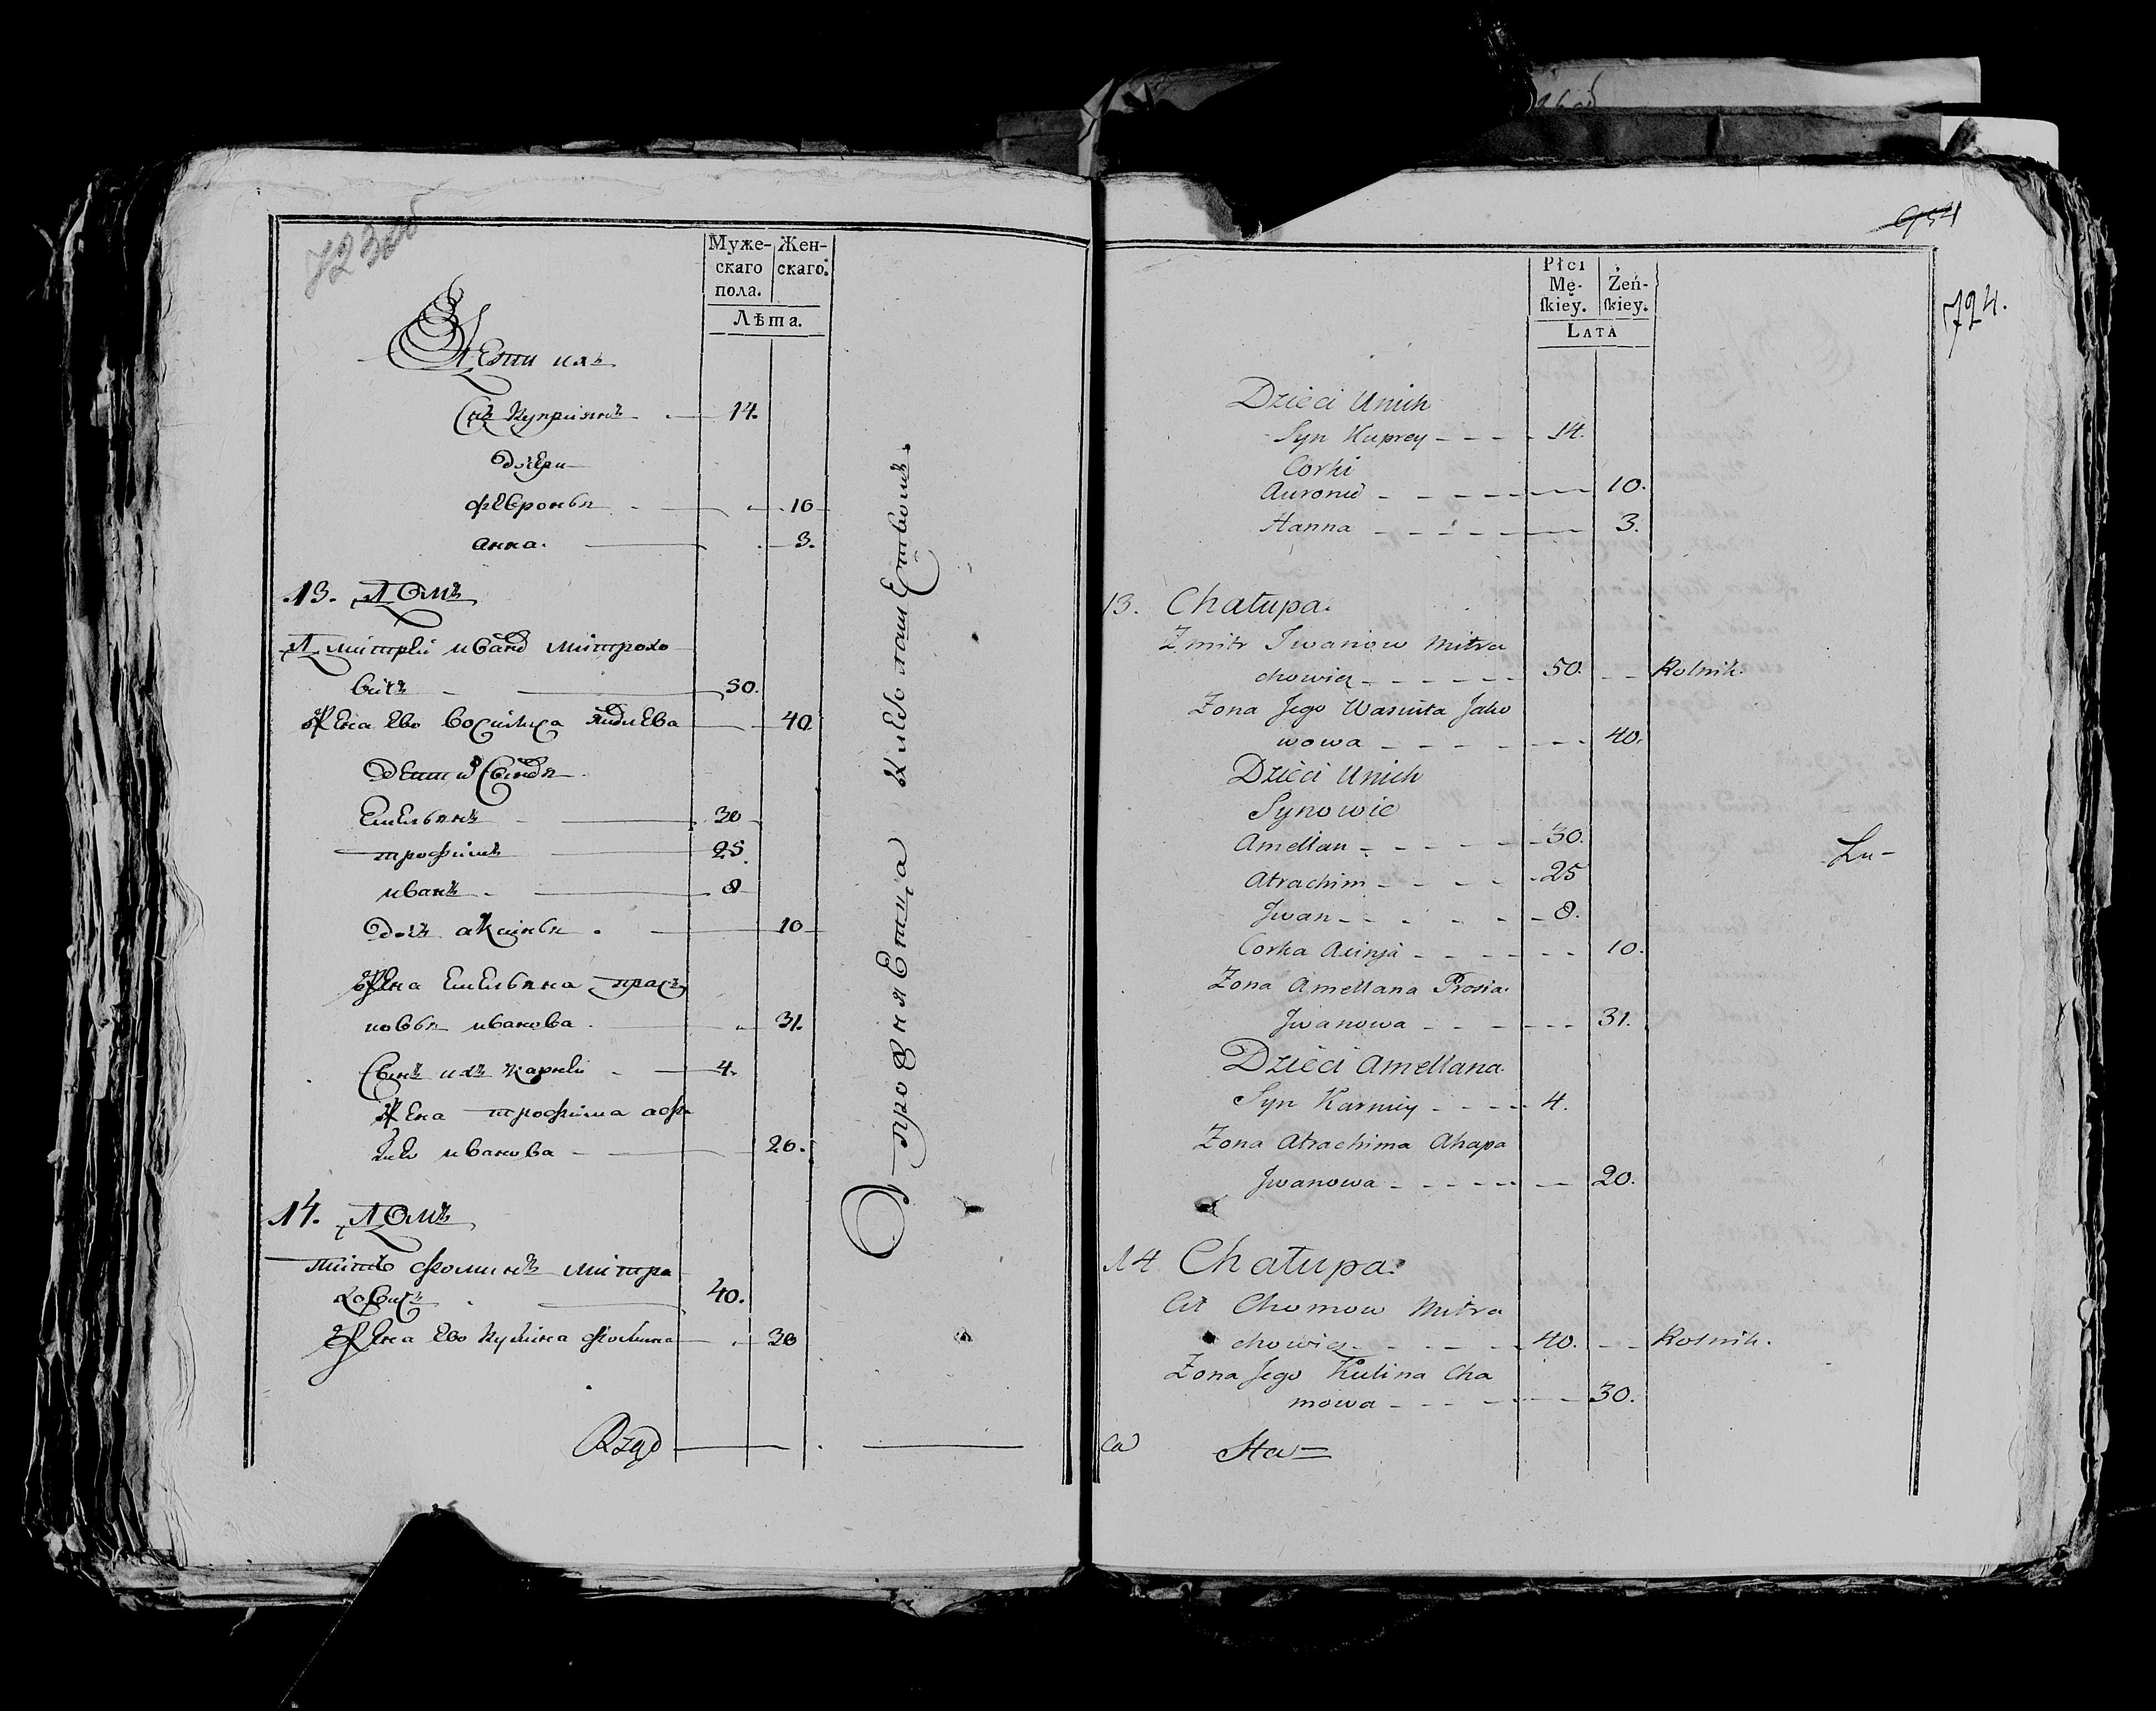 723об
Муже-
скаго
пола.
Жен-
скаго.
Лѣта.
Дети ихъ
Снъ Куприянъ 14.
дочери
Февронья 10
анна. 3.
13. Домъ
Дмитрей иванд митрохо
вичъ 50.
Жена ево Восилиса Яковлева 40
Емельянъ 30
трофимъ 25
иванъ 8
дочъ аксинья 10
Жена Емельяна праск
новья иванова 31.
Сынъ ихъ Карней 4.
Жена трофима
иванова 20.
14. Домъ
титъ фоминъ митра
ховичъ 40.
Жена ево Кулина фомина 30
Rząd
954
724.
Płci
Mę-
ſkiey.
Żeń-
ſkiey.
LATA
Dzieci Unich
Syn Kuprey 14.
Corki
Auronia 10.
Hanna 3.
13. Chałupa.
Zmitr Iwanow Mitra
chowicz 50. Rolnik.
Zona Jego Wasiuta Jako
wowa 40.
Dzieci Unich
Synowie
Amellan 30.
Atrachim 25
Jwan 8.
Corka Axinja 10.
Zona Amellana Prosia
Jwanowa 31.
Dzieci Amellana
Syn Karniey 4.
Zona Atrachima Ahapa
Jwanowa 20.
Lu-
14 Chałupa.
Cit Chomow Mitra
chowicz 40. Rolnik.
Zona Jego Kulina Cha
mowa 30.
ca